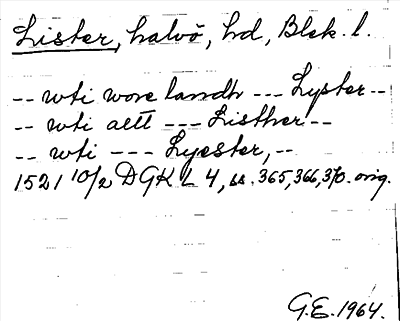 Lister, halvö, hd, Blek. l.
-- wti wore landh --- Lyster --
-- wti altt --- Listher --
-- wti --- Lyester, --
1521 10/2 DGK L 4, ss. 365, 366, 370. orig.
G.E. 1964.